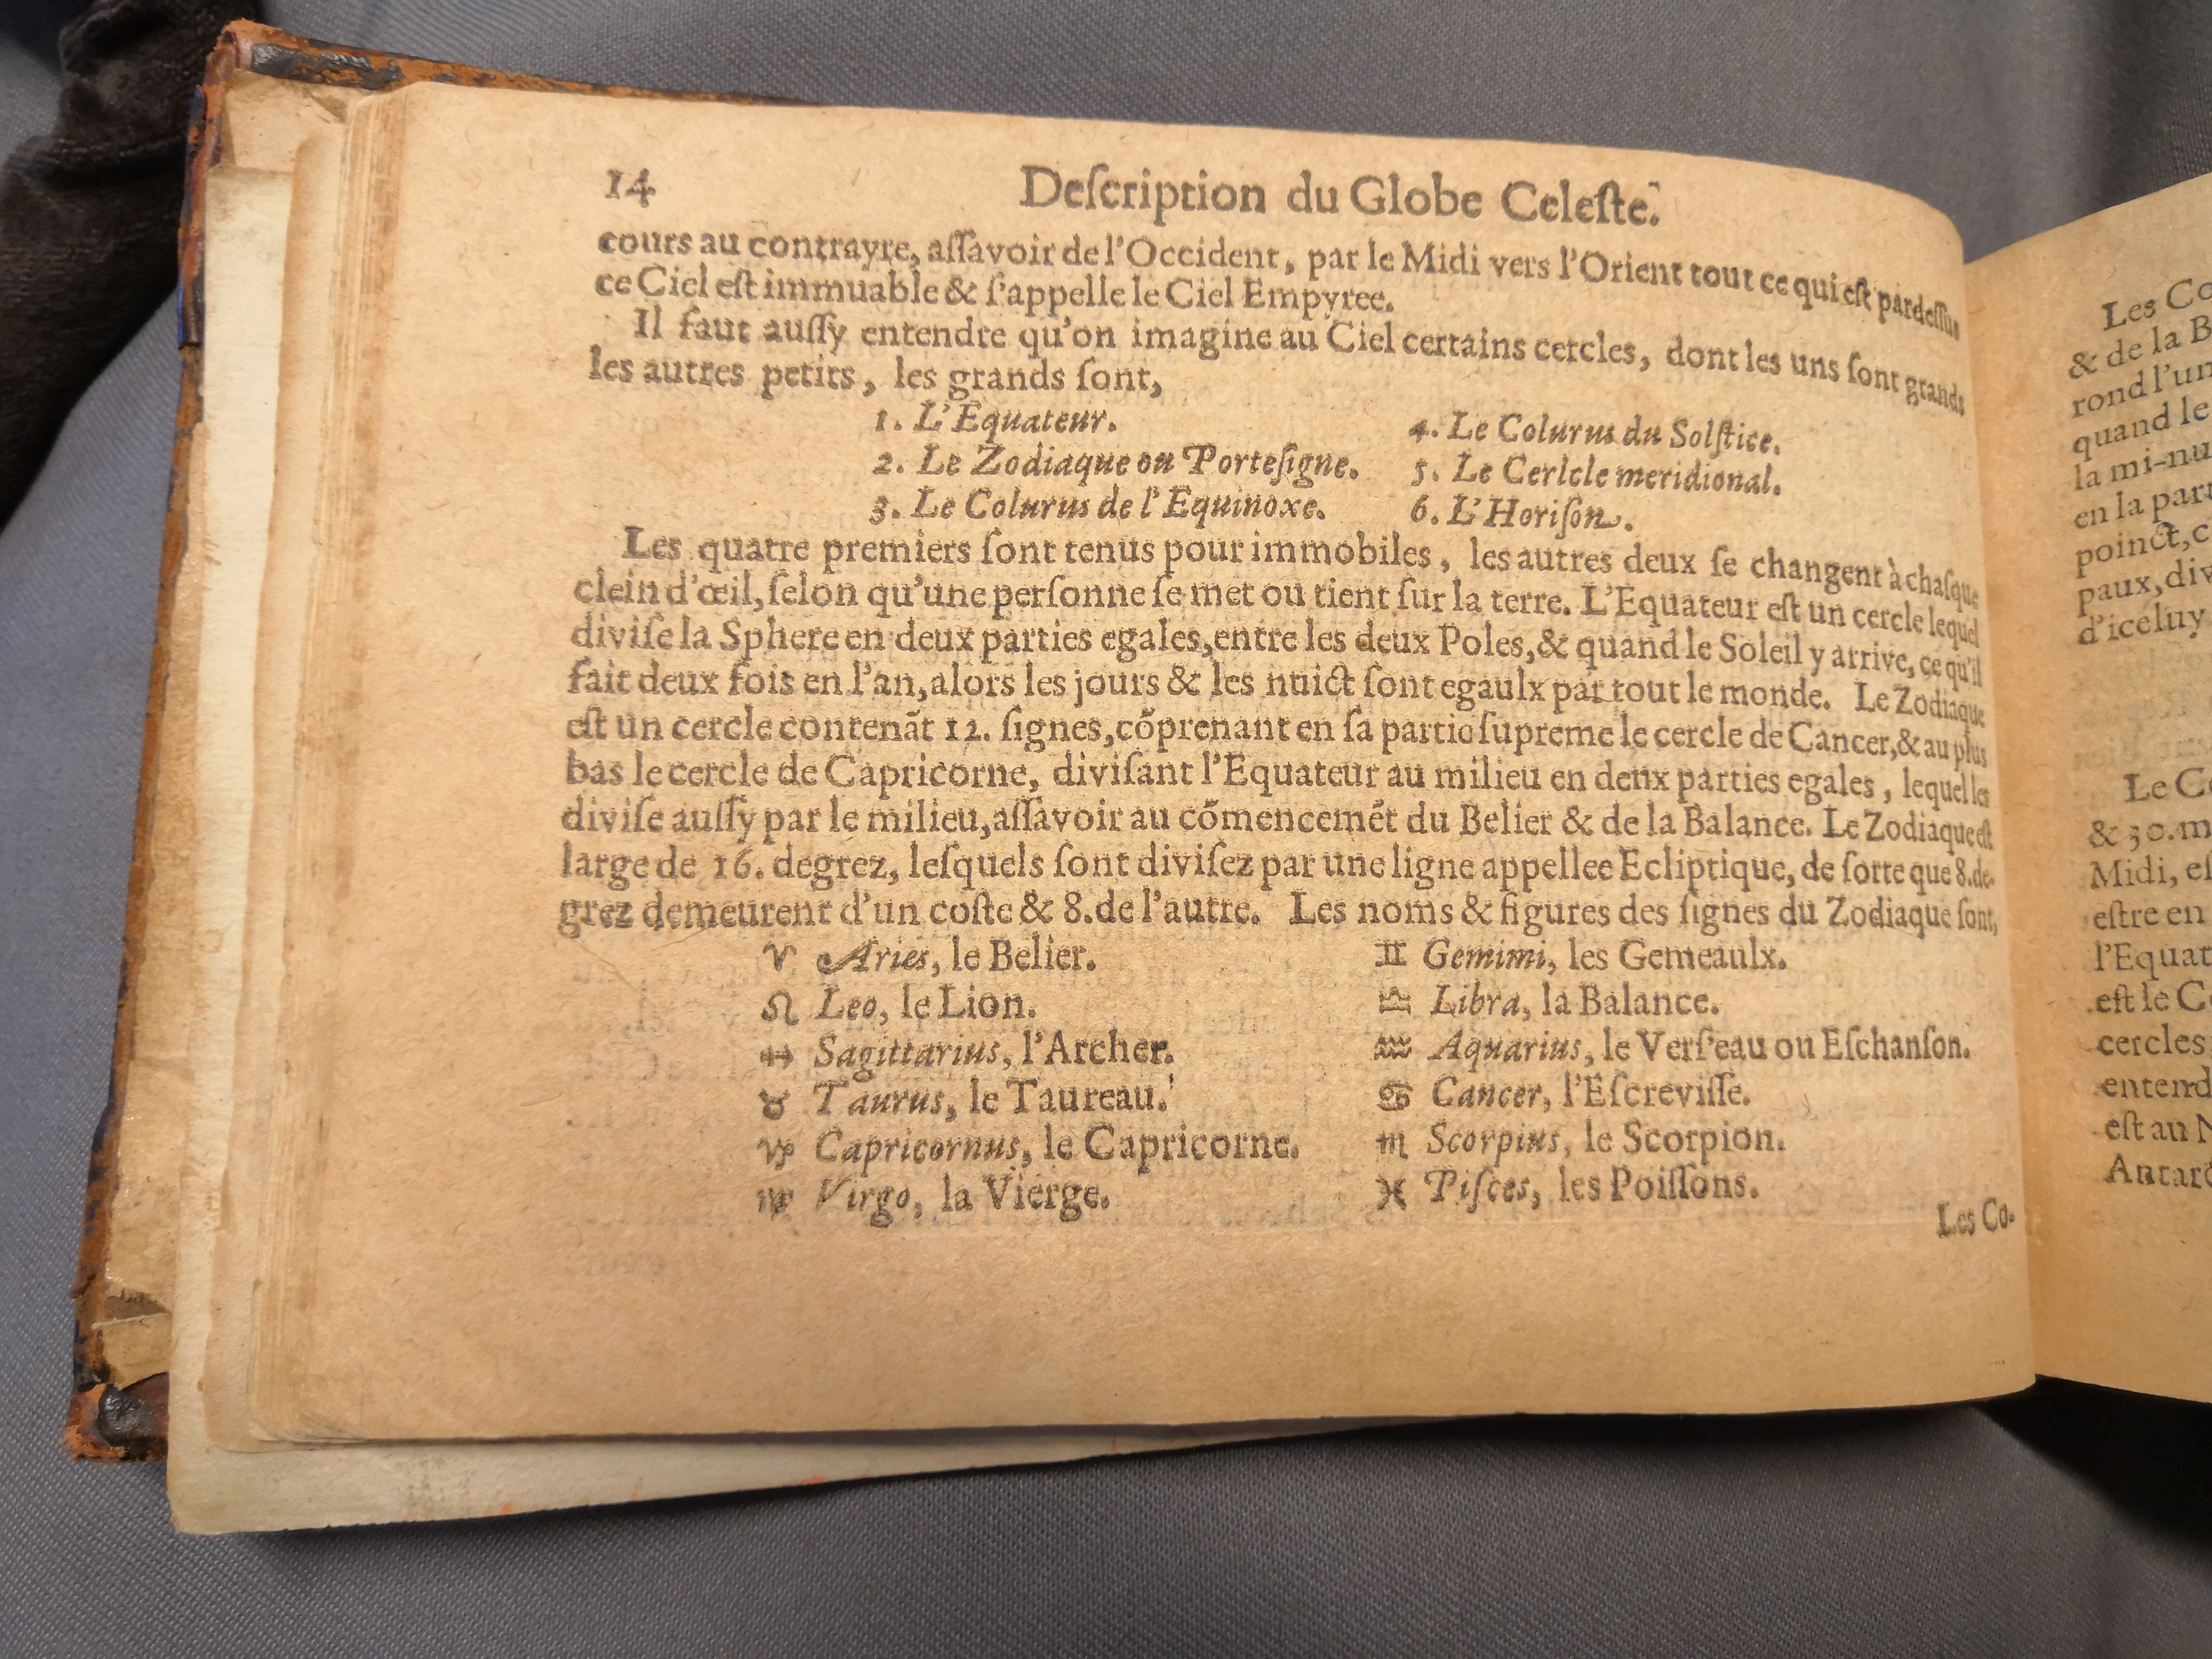 14 Deſcription du Globe Celeſte.
cours au contrayre, aſſavoir de l'Occident, par le Midi vers l'Orient tout ce qui eſt pardeſſus
ce Ciel eſt immuable & ſ'appelle le Ciel Empyree.
Il faut auſſy entendre qu'on imagine au Ciel certains cercles, dont les uns ſont grands
les autres petits, les grands ſont,
1. L'Equateur. 4. Le Colurus du Solſtice.
2. Le Zodiaque ou Porteſigne. 5. Le Cerlcle meridional.
3. Le Colurus de l'Equinoxe. 6. L'Horiſon.
Les quatre premiers ſont tenus pour immobiles, les autres deux ſe changent à chaſque
clein d'œil, ſelon qu'une perſonne ſe met ou tient ſur la terre. L'Equateur eſt un cercle lequel
diviſe la Sphere en deux parties egales, entre les deux Poles, & quand le Soleil y arrive, ce qu'il
fait deux fois en l'an, alors les jours & les nuict ſont egaulx par tout le monde. Le Zodiaque
eſt un cercle contenãt 12. ſignes, cõprenant en ſa partie ſupreme le cercle de Cancer, & au plus
bas le cercle de Capricorne, diviſant l'Equateur au milieu en deux parties egales, lequel les
diviſe auſſy par le milieu, aſſavoir au cõmencemẽt du Belier & de la Balance. Le Zodiaque eſt
large de 16. degrez, leſquels ſont diviſez par une ligne appellee Ecliptique, de ſorte que 8. de-
grez demeurent d'un coſte & 8. de l'autre. Les noms & figures des ſignes du Zodiaque ſont,
♈ Aries, le Belier. ♊ Gemimi, les Gemeaulx.
♌ Leo, le Lion. ♎ Libra, la Balance.
♐ Sagittarius, l'Archer. ♒ Aquarius, le Verſ'eau ou Eſchanſon.
♉ Taurus, le Taureau. ♋ Cancer, l'Eſcreviſſe.
♑ Capricornus, le Capricorne. ♏ Scorpius, le Scorpion.
♍ Virgo, la Vierge. ♓ Piſces, les Poiſſons.
Les Co-
Les Co
& de la B
rond l'un
quand le
la mi-nu
en la part
poinct, c
paux, div
d'iceluy
Le Co
& 30. m
Midi, eſ
eſtre en
l'Equat
eſt le C
cercles
entend
eſt au N
Antarc